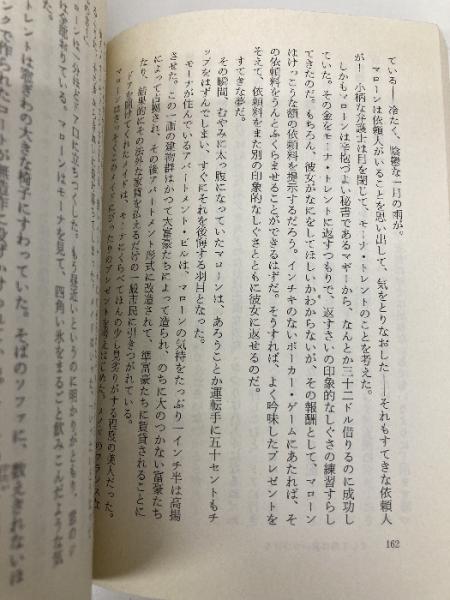 ている！　冷たく、陰鬱な一月の雨が。
マローンは依頼人がいることを思い出して、気をとりなおした——それもすてきな依頼人
が！　小柄な弁護士は目を閉じて、モーナ・トレントのことを考えた。
しかもマローンは辛抱づよい秘書であるマギーから、なんとか三十二ドル借りるのに成功し
ていた。その金をモーナ・トレントに返すつもりで、返すさいの印象的なしぐさの練習すらし
てきたのだ。もちろん、彼女がなにをしてほしいかわからないが、その報酬として、マローン
はけっこうな額の依頼料を提示するだろう。インチキのないポーカー・ゲームにあたれば、そ
の依頼料をうんとふくらませることができるはずだ。そうすれば、よく吟味したプレゼントを
そえて、依頼料をまた別の印象的なしぐさとともに彼女に返せるのだ。
すてきな夢だ。
その瞬間、むやみに太っ腹になっていたマローンは、あろうことか運転手に五十セントもチ
ップをはずんでしまい、すぐにそれを後悔する羽目となった。
モーナが住んでいるアパートメント・ビルは、マローンの気持をたっぷり一インチ半は高揚
させた。この一画の建物群はかつて大富豪たちによって造られ、のちに大のつかない富豪たち
によって占拠され、その後アパートメント形式に改造されて、準富豪たちに賃貸されることに
なり、結果的にその法外な家賃を払えるだけの一般市民に引きつがれている。
ドアを開けてくれたメイドは、モーナにくらべてほんの少し見劣りがする程度の美人だった。
マローンは
トレントは
椅子にすわっていた。そばのソファに、数えきれないほ
162